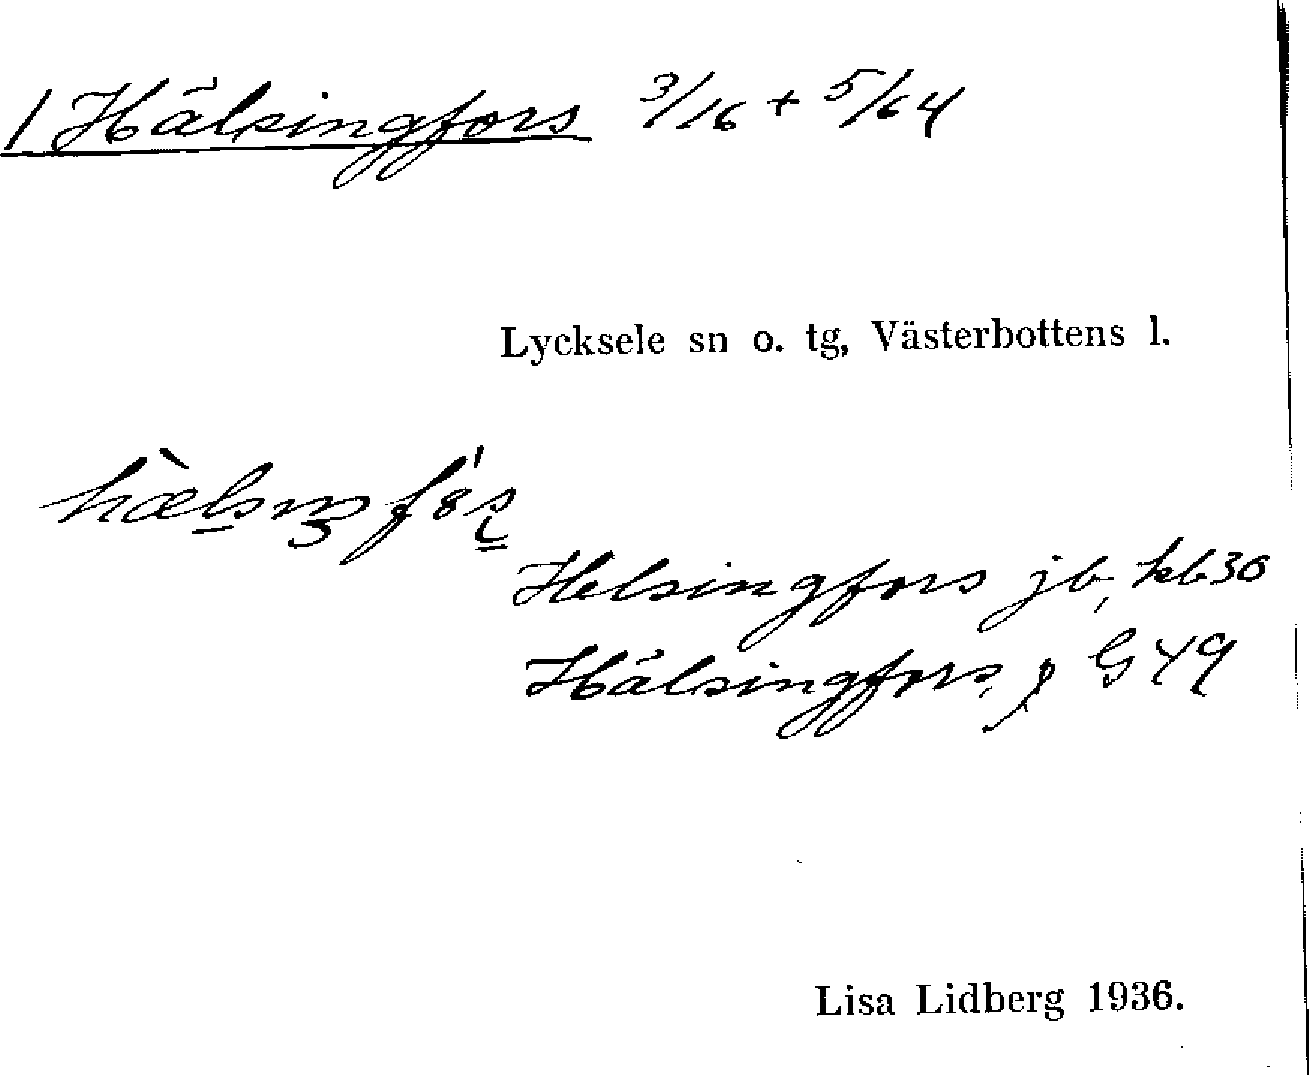 1 Hälsingfors 3/16 + 5/64
Lycksele sn o. tg, Västerbottens l.
Helsingfors jb, kb 30
Hälsingfors, G 49
Lisa Lidberg 1936.